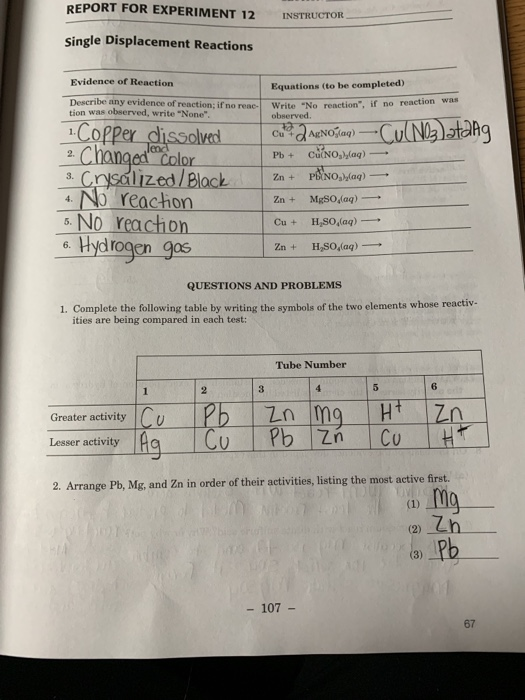 REPORT FOR EXPERIMENT 12 INSTRUCTOR
Single Displacement Reactions
Evidence of Reaction
Equations (to be completed)
Describe any evidence of reaction; if no reac-
tion was observed, write "None".
Write "No reaction", if no reaction was
observed.
1. Copper dissolved
Cu + 2 AgNO₃(aq) → Cu(NO₃)₂+2Ag
2. Changed lead color
Pb + Cu(NO₃)₂(aq) →
3. Crysalized/Black
Zn + Pb(NO₃)₂(aq) →
4. No reaction
Zn + MgSO₄(aq) →
5. No reaction
Cu + H₂SO₄(aq) →
6. Hydrogen gas
Zn + H₂SO₄(aq) →
QUESTIONS AND PROBLEMS
1. Complete the following table by writing the symbols of the two elements whose reactiv-
ities are being compared in each test:
Tube Number
1 2 3 4 5 6
Greater activity Cu Pb Zn Mg H+ Zn
Lesser activity Ag Cu Pb Zn Cu H+
2. Arrange Pb, Mg, and Zn in order of their activities, listing the most active first.
(1) Mg
(2) Zn
(3) Pb
- 107 -
67